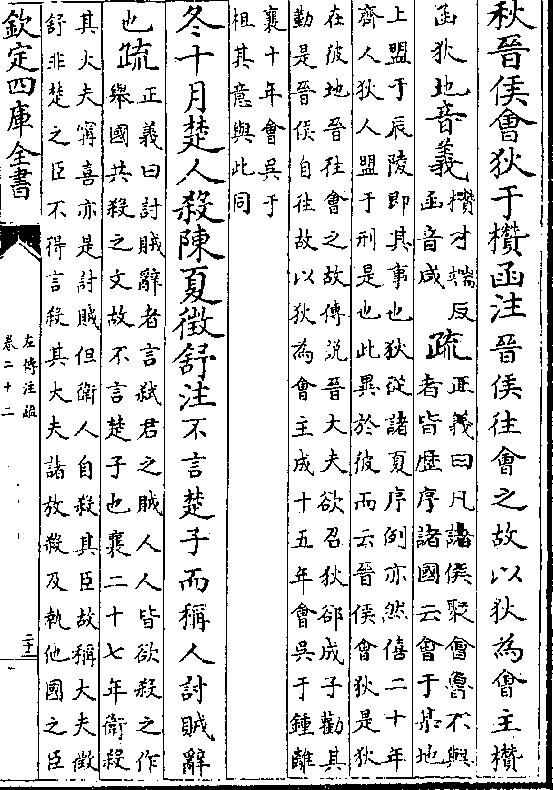 秋晉侯會狄于欑函注晉侯往會之故以狄為會主欑
函狄地音義欑才端反函音咸疏正義曰凡諸侯聚會魯不與
者皆歷序諸國云會于某地
上盟于辰陵即其事也狄從諸夏序例亦然僖二十年
齊人狄人盟于刑是也此異於彼而云晉侯會狄是狄
在彼地晉往會之故傳說晉大夫欲召狄郤成子勸其
勤是晉侯自往故以狄為會主成十五年會吳于鍾離
襄十年會吳于
柤其意與此同
冬十月楚人殺陳夏徵舒注不言楚子而稱人討賊辭
也疏正義曰討賊辭者言弒君之賊人人皆欲殺之作
舉國共殺之文故不言楚子也襄二十七年衛殺
其大夫甯喜亦是討賊但衛人自殺其臣故稱大夫徵
舒非楚之臣不得言殺其大夫諸放殺及執他國之臣
欽定四庫全書
左傳注疏
卷二十二